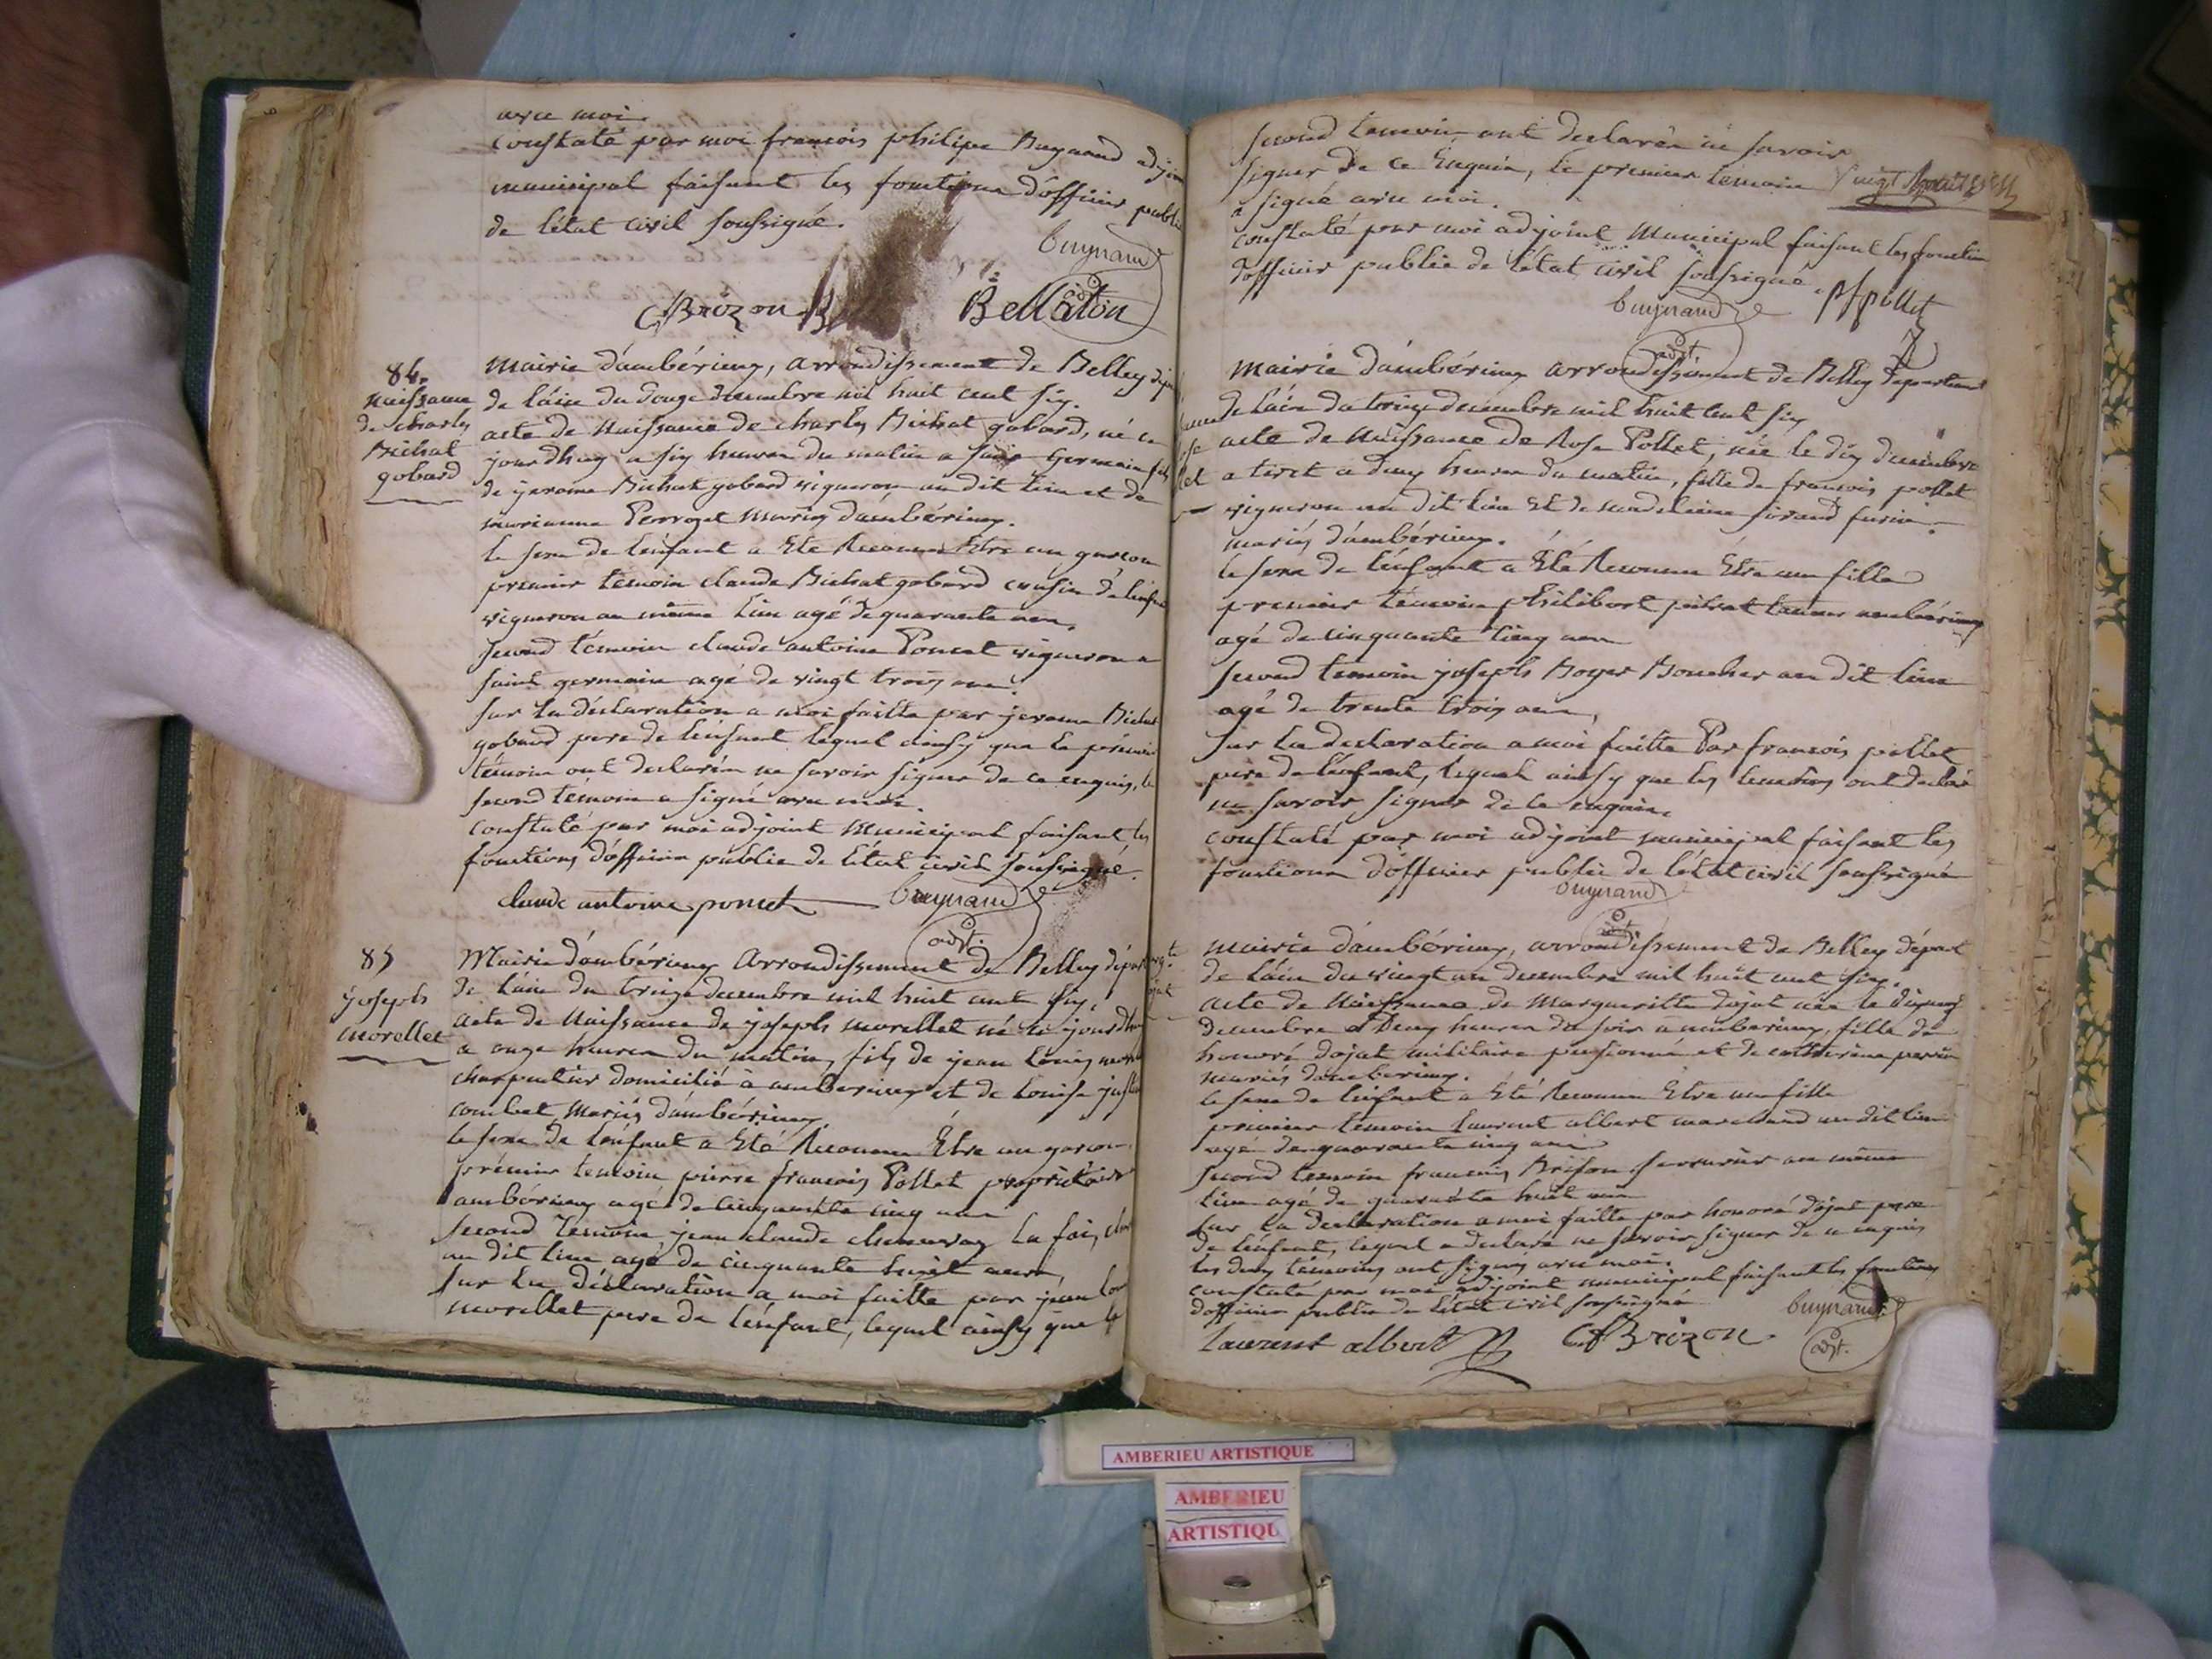 avec moi.
constaté par moi francois philipe Buynand adjoin
municipal faisant les fonctions d'officier public
de l'état civil soussigné.
buynand
adjt.
Brizon
Bellaton
84.
Naissance
de charles
Bichat
gobard
Mairie d'ambérieux, arrondissement de Belley dépt
de l'ain du douze decembre mil huit cent six.
acte de Naissance de charles Bichat gobard, né ce
jourdhuy a six heures du matin a saint Germain fils
de jerome Bichat gobard vigneron au dit lieu et de
marianne Perroget mariés d'ambérieux.
le sexe de l'enfant a Eté Reconnu Etre un garcon
premier témoin claude Bichat gobard cousin de l'enfant
vigneron au même lieu agé de quarante ans.
second témoin claude antoine Poncet vigneron a
saint germain agé de vingt trois ans.
sur la déclaration a moi faitte par jerome Bichat
gobard pere de l'enfant lequel ainsy que le premier
témoin ont declarés ne savoir signer de ce enquis, le
second temoin a signé avec moi.
constaté par moi adjoint Municipal faisant les
fonctions d'officier public de l'état civil soussigné.
claude antoine poncet
buynand
adjt.
85
joseph
morellet
Mairie d'ambérieux Arrondissement de Belley dépar
de l'ain du treize decembre mil huit cent six.
acte de Naissance de joseph morellet né ce jourdhui
a onze heures du matin, fils de jean Louis
charpentier domicilié à ambérieux et de Louise
combet Mariés d'ambérieux
le sexe de l'enfant a Eté Reconnu Etre un garcon
prémier temoin pierre francois Pollet propriétaire
ambérieux agé de cinquante cinq ans
second Temoin jean claude
au dit lieu agé de cinquante huit ans,
sur la déclaration a moi faitte par jean Lou
morellet pere de l'enfant, lequel ainsy que le
second temoin ont declarés ne savoir
signer de ce Enquis, le premier temoin
a signé avec moi.
constaté par moi adjoint Municipal faisant les fonction
d'officier public de l'état civil soussigné.
buynand
adjt.
pfpollet
Mairie d'ambérieux arrondissement de Belley departement
de l'ain du treize decembre mil huit cent six
acte de Naissance de Rose Pollet, née le dix decembre
a tiret a deux heures du matin, fille de francois pollet
vigneron au dit lieu Et de madelaine
mariés d'ambérieux.
le sexe de l'enfant a Eté Reconnu Etre une fille
premier témoin philibert ambérieux
agé de cinquante cinq ans
second temoin joseph Boyer Boucher au dit lieu
agé de trente trois ans,
sur la declaration a moi faitte Par francois pollet
pere de l'enfant, lequel ainsy que les temoins ont declaré
ne savoir signer de ce enquis.
constaté par moi adjoint municipal faisant les
fonctions d'officier public de l'état civil soussigné
buynand
adjt.
Mairie d'ambérieux, arrondissement de Belley départ
de l'ain du vingt un decembre mil huit cent six.
acte de Naissance de Margueritte dojat née le dixneuf
decembre a Deux heures du soir a ambérieux, fille de
honoré dojat militaire pensionné et de catherine
mariés d'ambérieux.
le sexe de l'enfant a Eté Reconnu Etre une fille
premier temoin laurent albert marchand au dit lieu
agé de quarante cinq ans
second temoin francois Brison serrurier au même
lieu agé de quarante huit ans
sur la declaration a moi faitte par honoré dojat pere
de l'enfant, lequel a declaré ne savoir signer de ce enquis
les deux témoins ont signés avec moi.
constaté par moi adjoint municipal faisant les fonctions
d'officier public de l'état civil soussigné
buynand
adjt.
laurent albert
Brizon
AMBERIEU ARTISTIQUE
AMBERIEU
ARTISTIQU